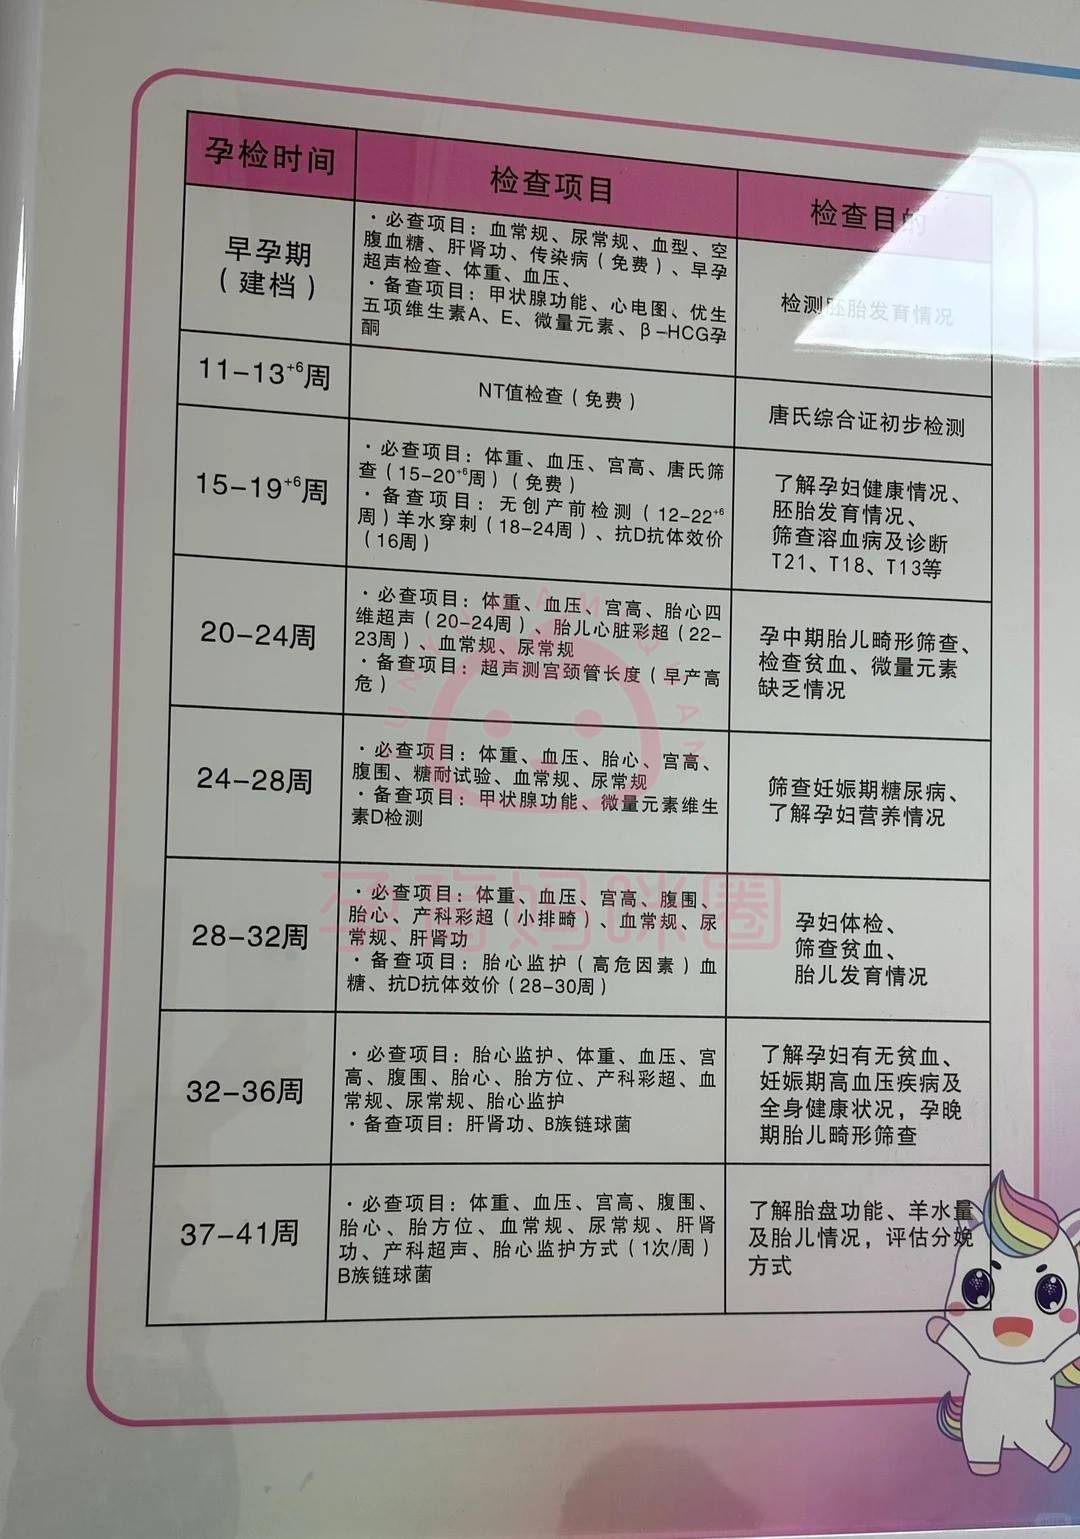 孕检时间
检查项目
检查目的
早孕期
（建档）
·必查项目：血常规、尿常规、血型、空
腹血糖、肝肾功、传染病（免费）、早孕
超声检查、体重、血压、
·备查项目：甲状腺功能、心电图、优生
五项维生素A、E、微量元素、β-HCG孕
酮
检测胚胎发育情况
11-13+6周
NT值检查（免费）
唐氏综合证初步检测
15-19+6周
·必查项目：体重、血压、宫高、唐氏筛
查（15-20+6周）（免费）
·备查项目：无创产前检测（12-22+6
周）羊水穿刺（18-24周）、抗D抗体效价
（16周）
了解孕妇健康情况、
胚胎发育情况、
筛查溶血病及诊断
T21、T18、T13等
20-24周
·必查项目：体重、血压、宫高、胎心四
维超声（20-24周）、胎儿心脏彩超（22-
23周）、血常规、尿常规
·备查项目：超声测宫颈管长度（早产高
危）
孕中期胎儿畸形筛查、
检查贫血、微量元素
缺乏情况
24-28周
·必查项目：体重、血压、胎心、宫高、
腹围、糖耐试验、血常规、尿常规
·备查项目：甲状腺功能、微量元素维生
素D检测
筛查妊娠期糖尿病、
了解孕妇营养情况
28-32周
·必查项目：体重、血压、宫高、腹围、
胎心、产科彩超（小排畸）、血常规、尿
常规、肝肾功
·备查项目：胎心监护（高危因素）血
糖、抗D抗体效价（28-30周）
孕妇体检、
筛查贫血、
胎儿发育情况
孕育妈咪圈
32-36周
·必查项目：胎心监护、体重、血压、宫
高、腹围、胎心、胎方位、产科彩超、血
常规、尿常规、胎心监护
·备查项目：肝肾功、B族链球菌
了解孕妇有无贫血、
妊娠期高血压疾病及
全身健康状况，孕晚
期胎儿畸形筛查
37-41周
·必查项目：体重、血压、宫高、腹围、
胎心、胎方位、血常规、尿常规、肝肾
功、产科超声、胎心监护方式（1次/周）
B族链球菌
了解胎盘功能、羊水量
及胎儿情况，评估分娩
方式